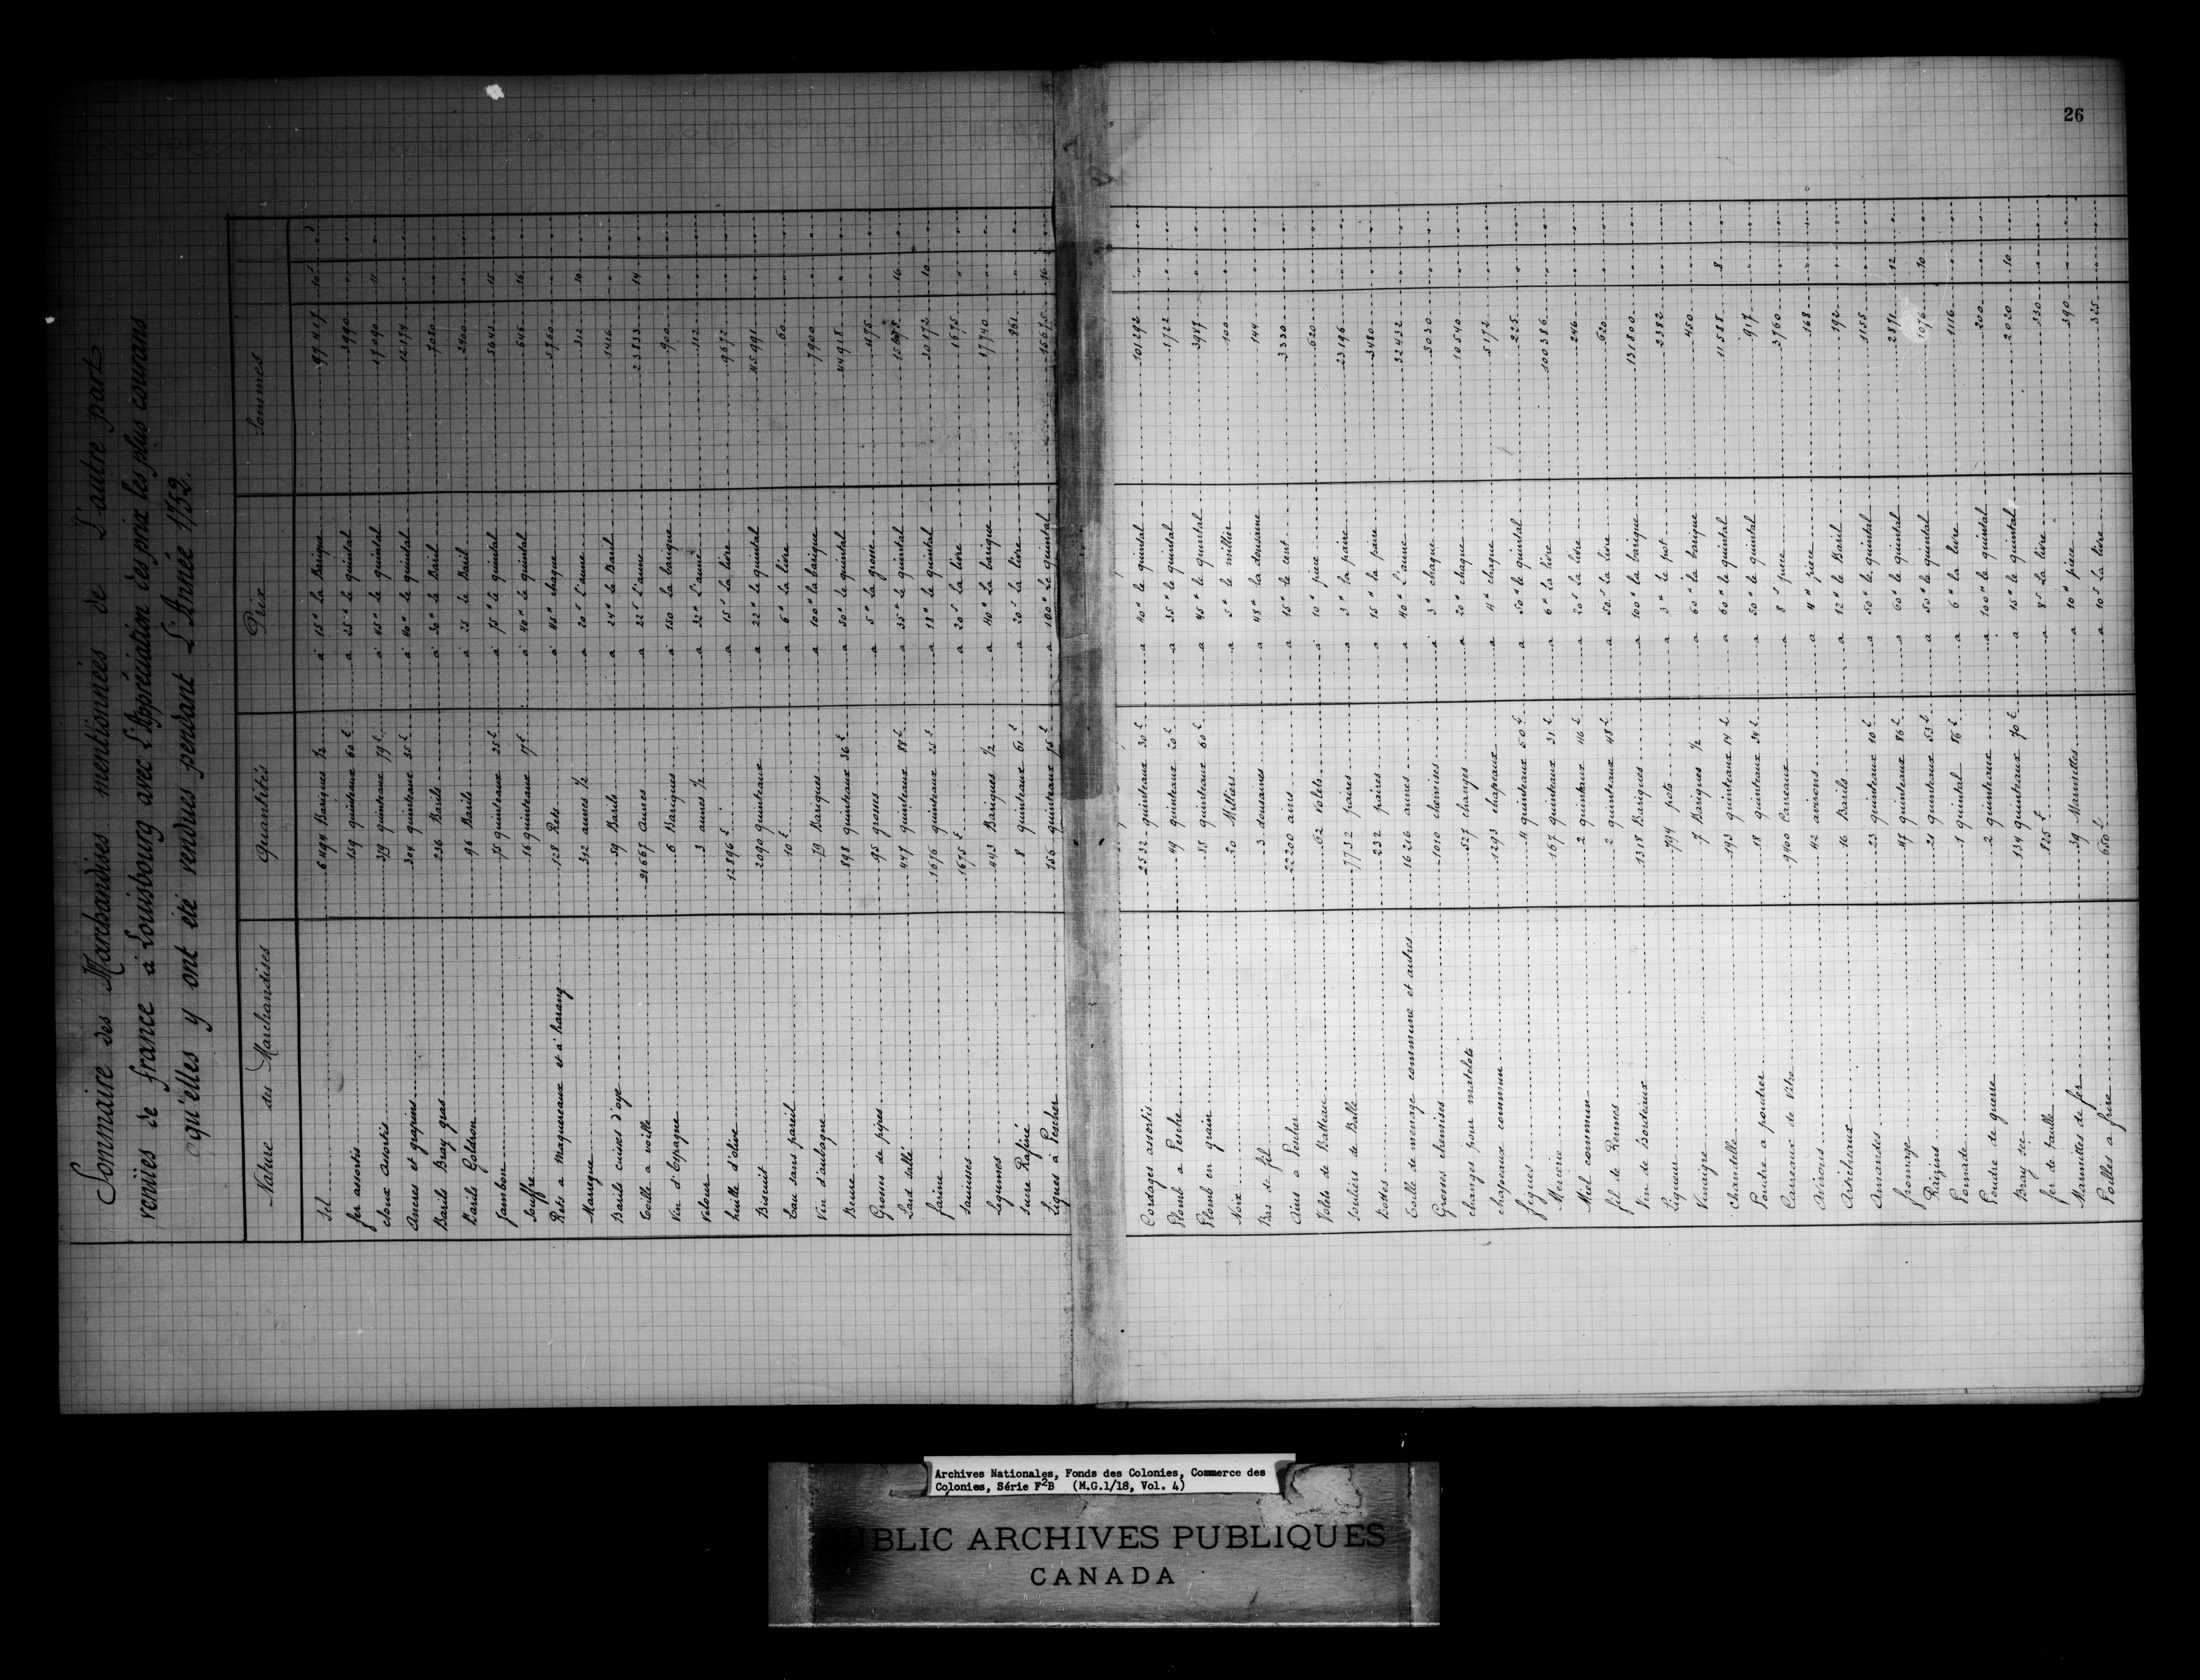 26
Sommaire des Marchandises mentionnées de L'autre part
venües de france à Louisbourg avec L'Appréciation des prix les plus courans
qu'elles y ont été vendues pendant L'Année 1752.
Nature des Marchandises Quantités Prix Sommes
Sel 6494 Bariques ½ à 15" La Barique 97417 10
fer assortis 159 quinteaux 60 a 25" le quintal 3990
cloux assortis 379 quinteaux 79 à 45" le quintal 17090 11
Ancres et grapins 304 quinteaux 35 à 40" le quintal 12174
Barils Bray gras 236 Barils à 30" le Baril 7080
Barils Goldron 96 Barils à 25 le Baril 2400
Jambon 75 quinteaux 25 à 75" le quintal 5643 15
Souffre 16 quinteaux 17 à 40" le quintal 646 16
Rets a Maquereaux et à harang 128 Rets à 45" chaque 5760
Manique 312 aunes ½ a 20s L'aune 312 10
Barils cuises d'oye 59 Barils a 24" le Baril 1416
Toille a voille 21667 Aunes a 22s L'aune 23833 14
Vin d'Espagne 6 Bariques à 150 La barique 900
Velour 3 aunes ½ a 32" L'aune 112
huille d'olive 12896 a 15s La livre 9672
Biscuit 2090 quinteaux a 22" le quintal 45991
Eau sans pareil 10 a 6" La livre 60
Vin d'aubagne 79 Bariques a 100" La barique 7900
Beure 898 quinteaux 36 a 50" le quintal 44918
Groses de pipes 95 groses a 5" La grose 475
Lard sallé 447 quinteaux 88 a 35" le quintal 16
farine 1676 quinteaux 25 a 18" le quintal 30172 10
saucisses 1675 a 20s La livre 1675
Legumes 443 Bariques ½ a 40" La barique 17740
Sucre Rafiné 8 quinteaux 61 a 20s La livre 861
Lignes à Pescher 156 quinteaux a 100" Le quintal 15675 16
Cordages assortis 2532 quinteaux 30 a 40" le quintal 10192
Plomb a Pesche 49 quinteaux 20 a 35" le quintal 1722
Plomb en grain 88 quinteaux 60 a 45" le quintal 3987
Noix 20 Milliers a 5" le millier 100
Bas de fil 3 dousaines a 48" La dousaine 144
Ains a Pescher 22200 ains a 15" le cent 3330
Volets de Batteau 62 Volets à 10" piece 620
souliers de Balle 7732 paires a 3" La paire 23196
Bottes 232 paires a 15" La paire 3480
Toille de menage commune et autres 1626 aunes a 40" L'aune 32432
Grosses chemises 1010 chemises à 3" chaque 3030
changes pour matelots 527 changes a 20" chaque 10540
chapeaux commun 1293 chapeaux a 4" chaque 5172
figues 4 quinteaux 50 a 50" le quintal 225
Mercerie 167 quinteaux 31 a 6" La livre 100386
Miel commun 2 quinteaux 46 a 20s La livre 246
fil de Rennes 2 quinteaux 48 a 50s La livre 620
Vin de Bordeaux 1318 Bariques a 100" La barique 131800
Liqueur 794 pots a 3" Le pot 2382
Vinaigre 7 Bariques ½ a 60" La barique 450
Chandelle 193 quinteaux 14 a 60" le quintal 11588 8
Poudre a poudrer 18 quinteaux 34 a 50" le quintal 917
Carreaux de Vitre 9400 Carreaux a 8s piece 3760
Avirons 42 avirons a 4" piece 168
Articheaux 16 Barils a 12" le Baril 192
Amandes 23 quinteaux 10 a 50" le quintal 1155
fromage 47 quinteaux 86 a 60" le quintal 2871 12
Raizins 21 quinteaux 53 a 50" le quintal 1076 10
Pomade 1 quintal 86 a 6" La livre 1116
Poudre de guerre 2 quinteaux a 100" le quintal 200
Bray sec 134 quinteaux 70 a 15" le quintal 2020 10
fer de taille 825 a 8s La livre 330
Marmittes de fer 39 Marmittes a 10" piece 390
Poilles a frire 650 a 10s La livre 325
Archives Nationales, Fonds des Colonies, Commerce des
Colonies, Série F²B (M.G.1/18, Vol. 4)
PUBLIC ARCHIVES PUBLIQUES
CANADA